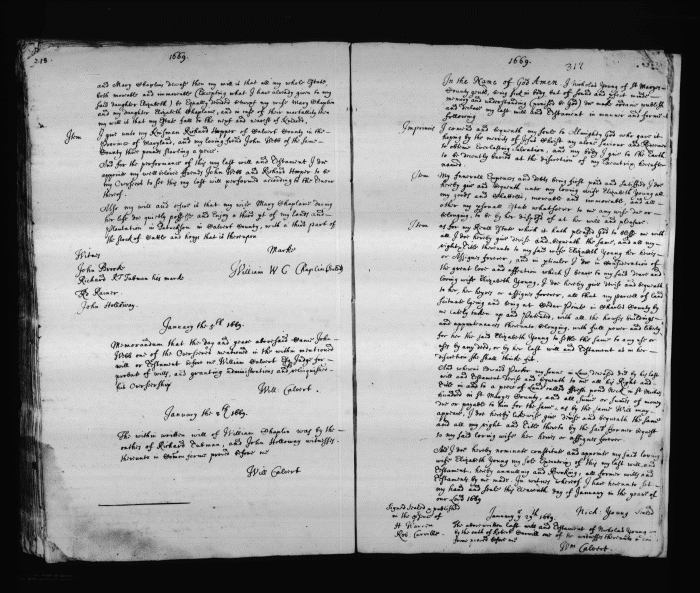 218.
1669.
and Mary Chaplin
both moveable and immoveable (Excepting what I have already given to my
said daughter Elizabeth) to Equally divided Except my wife Mary Chaplin
and my daughter Elizabeth Chaplin, and in case of their mortality then
my will is that my Estate fall to the next and nearest of kindred,
Item I give unto my Kinsman Richard Hopper of Calvert County in the
Province of Maryland, and my loving friend John Webb of the same
County three pounds sterling a piece.
And for the performance of this my last will and Testament I doe
appoint my well beloved friends John Webb and Richard Hopper to be
my Overseers to see this my last will performed according to the Tenour
thereof.
Also my will and desire is that my wife Mary Chaplin during
her life doe quietly possesse and Enjoy a third pt of my lands and
plantation in Patuxson in Calvert County, with a third part of
the stock of Cattle and hoggs that is thereupon
Witnes
John Brooke
Richard his marke
John Holloway.
Marke
William W C Chaplin
January the 1669.
Memorandum that the day and year aforesaid Came John
Webb one of the Overseers named in the within mentioned
will or Testament before me William Calvert Esq Judge for
probate of wills, and granting administrations and relinquisht
his Overseership
Will: Calvert.
January the 1669.
The within written will of William Chaplin was by the
oathes of Richard and John Holloway witnesses
thereunto in Comon forme proved before me
Will Calvert
1669.
317
In the Name of God Amen I Nicholas Young of St Maryes
County gent, being sick in body but of sound and perfect
memory and understanding (praised be God) doe make ordaine publish
and declare my last will and Testament in manner and forme
following
Imprimis I comend and bequeath my soule to Almighty God who gave it
hopeing by the merits of Jesus Christ my alone Saviour and Redeemer
to obtaine everlasting Salvation, and my body I give to the Earth
to be decently buried at the discretion of my Executrix hereafter
named
Item My funerall Expences and debts being first paid and satisfied I doe
hereby give and bequeath unto my loving wife Elizabeth Young all
my goods and Chattells, moveable and immoveable, and all
other my personall Estate whatsoever to me any wise due or
belonging, to be by her disposed of at her will and pleasure.
Item as for my Reall Estate which it hath pleased God to bless me with
all I doe hereby give devise and bequeath the same, and all my
right, Title thereunto to my said wife Elizabeth Young her heires
or Assignes forever, and in pticuler I doe in Consideration of
the great love and affection which I beare to my said deare and
loving wife Elizabeth Young, I doe hereby give devise and bequeath
to her, her heyres or assignes forever, all that my parcell of land
scituate lying and being at Cedar Pointe in Charles County by
me lately taken up and Patented, with all the houses buildings
and appurtenances thereunto belonging, with full power and liberty
for her the said Elizabeth Young to settle the same to any use or
uses by any deed, or by her last will and Testament as in her
discretion she shall think fitt.
And whereas Edward Parker my Sonne in Law deceased did by his last
will and Testament devise and bequeath to me all his Right and
Title in and to a piece of Land called Neck in St
hundred in St Maryes County, and all sume or sumes of money
due or payable to him for the same, as by the same Will may
appeare, I doe hereby likewise give devise and bequeath the same
and all my right and Title thereto by the said former bequest
to my said loving wife her heires or assignes forever
And I doe hereby nominate constitute and appoint my said loving
wife Elizabeth Young my sole Executrix of this my last will and
Testament, hereby annulling and Revoking, all former wills and
Testaments by me made. In witness whereof I have hereunto set
my hand and seale this Eleaventh day of January in the yeare of
our Lord 1669
Nich: Young sealed
Signed Sealed & published
in the psence of
H Warren
Rob. Carvile
January ye 29th 1669.
The abovewritten last will and Testament of Nicholas Young
by the oath of Robert Carvile one of the witnesses thereunto in
forme proved before me
Wm Calvert.